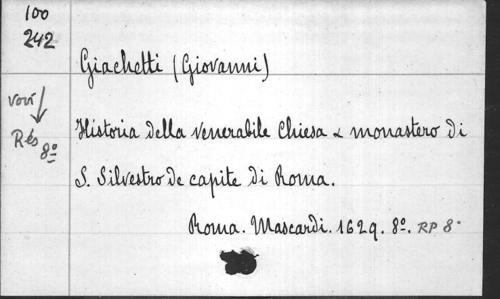 100
242
Giachetti (Giovanni)
voví
Rés
8º
Historia della venerabile Chiesa & monastero di
S. Silvestro de capite di Roma.
Roma. Mascardi. 1629. 8º. RP 8º